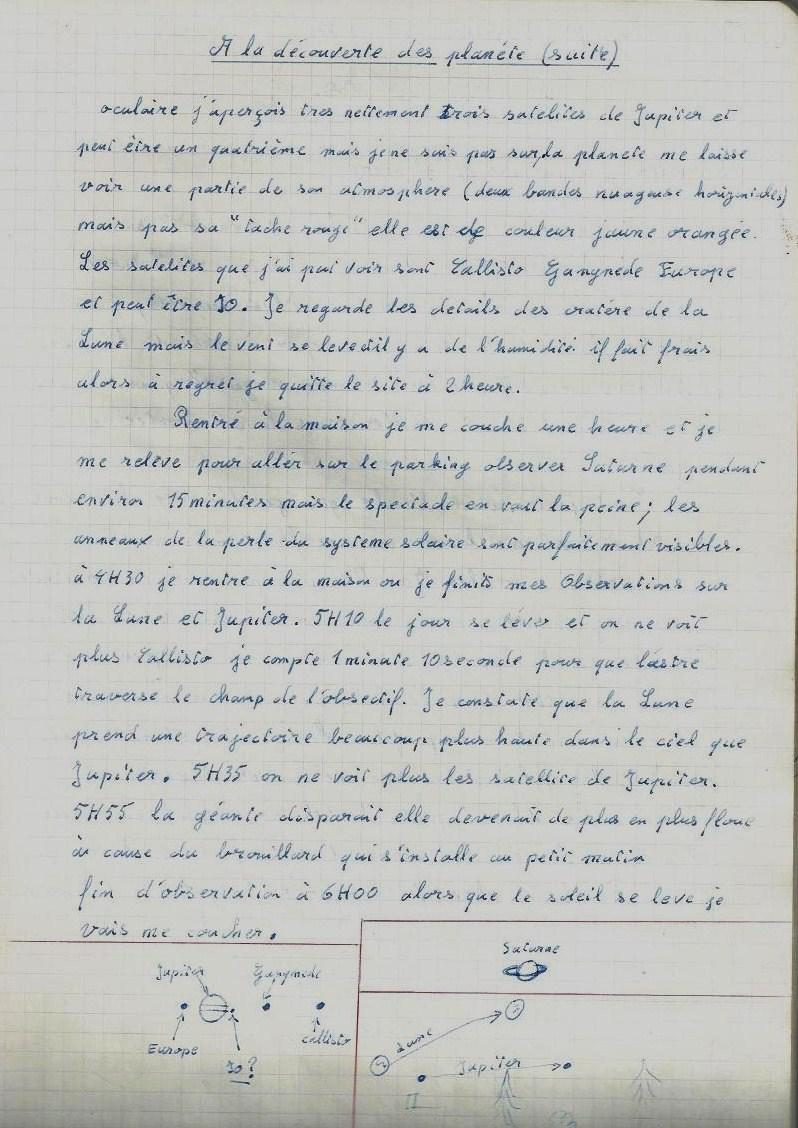 A la découverte des planéte (suite)
oculaire j'aperçois tres nettement trois satelites de Jupiter et
peut être un quatrième mais je ne suis pas sur, la planete me laisse
voir une partie de son atmosphère (deux bandes nuageuse horizontales)
mais pas sa "tache rouge" elle est de couleur jaune orangée.
Les satelites que j'ai put voir sont Callisto Ganynède Europe
et peut être IO. Je regarde les details des cratére de la
Lune mais le vent se leve etil y a de l'humidité il fait frais
alors à regret je quitte le site à 2 heure.
Rentré à la maison je me couche une heure et je
me relève pour allér sur le parking observer Saturne pendant
environ 15 minutes mais le spectacle en vaut la peine ; les
anneaux de la perle du système solaire sont parfaitement visibles.
à 4H30 je rentre à la maison ou je finits mes Observations sur
la Lune et Jupiter. 5H10 le jour se léve et on ne voit
plus Callisto je compte 1 minute 10 seconde pour que l'astre
traverse le champ de l'obsectif. Je constate que la Lune
prend une trajectoire beaucoup plus haute dans le ciel que
Jupiter. 5H35 on ne voit plus les satellite de Jupiter.
5H55 la géante disparait elle devenait de plus en plus floue
à cause du brouillard qui s'installe au petit matin
fin d'observation à 6H00 alors que le soleil se leve je
vais me coucher.
Jupiter Ganymede
Europe IO? Callisto
Saturne
Lune
Jupiter